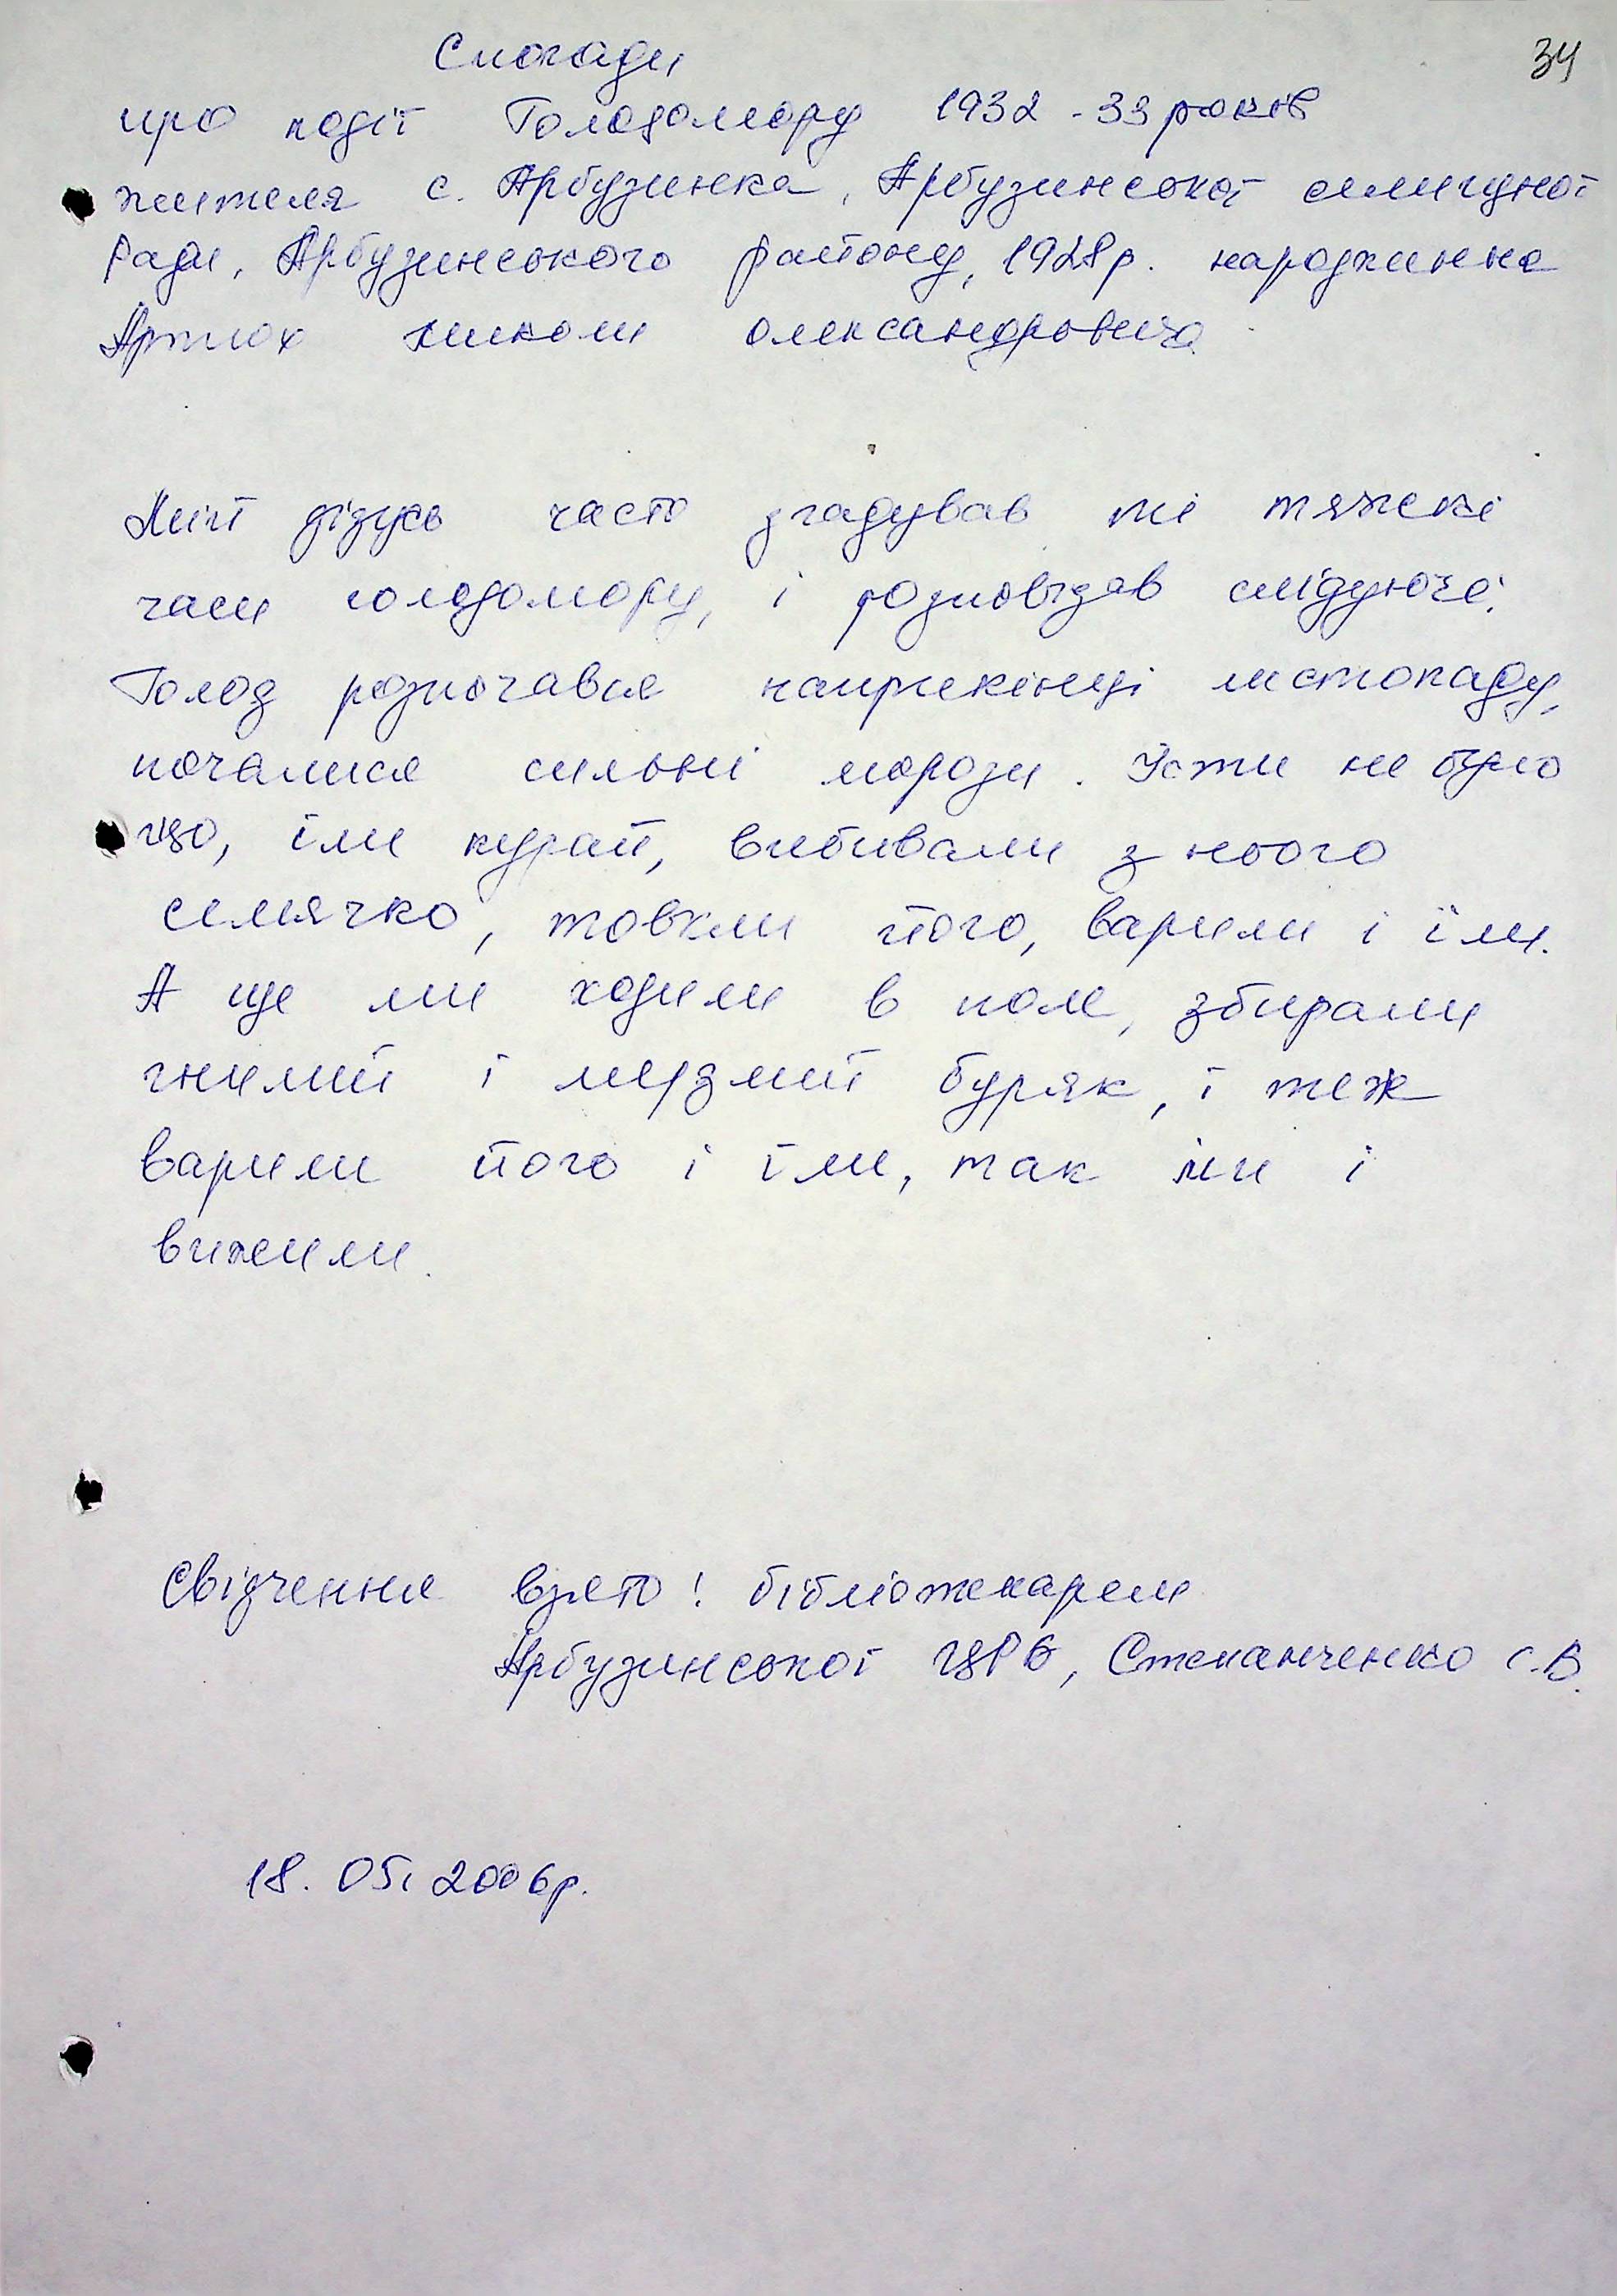 34
Спогади
про події Голодомору 1932-33 років
жителя с. Арбузинка, Арбузинської селищної
ради, Арбузинського району, 1928р. народження
Артюх Миколи Олександровича
Мій дідусь часто згадував ті тяжкі
часи голодомору, і розповідав слідуюче:
Голод розпочався наприкінці листопаду,
почалися сильні морози. Їсти не було
що, їли курай, вибивали з нього
сємячко, товкли його, варили і їли.
А ще ми ходили в поле, збирали
гнилий і мерзлий буряк, і теж
варили його і їли, так ми і
вижили.
Свідчення взято: бібліотекарем
Арбузинської ЦРБ, Степанченко С.В.
18.05.2006р.